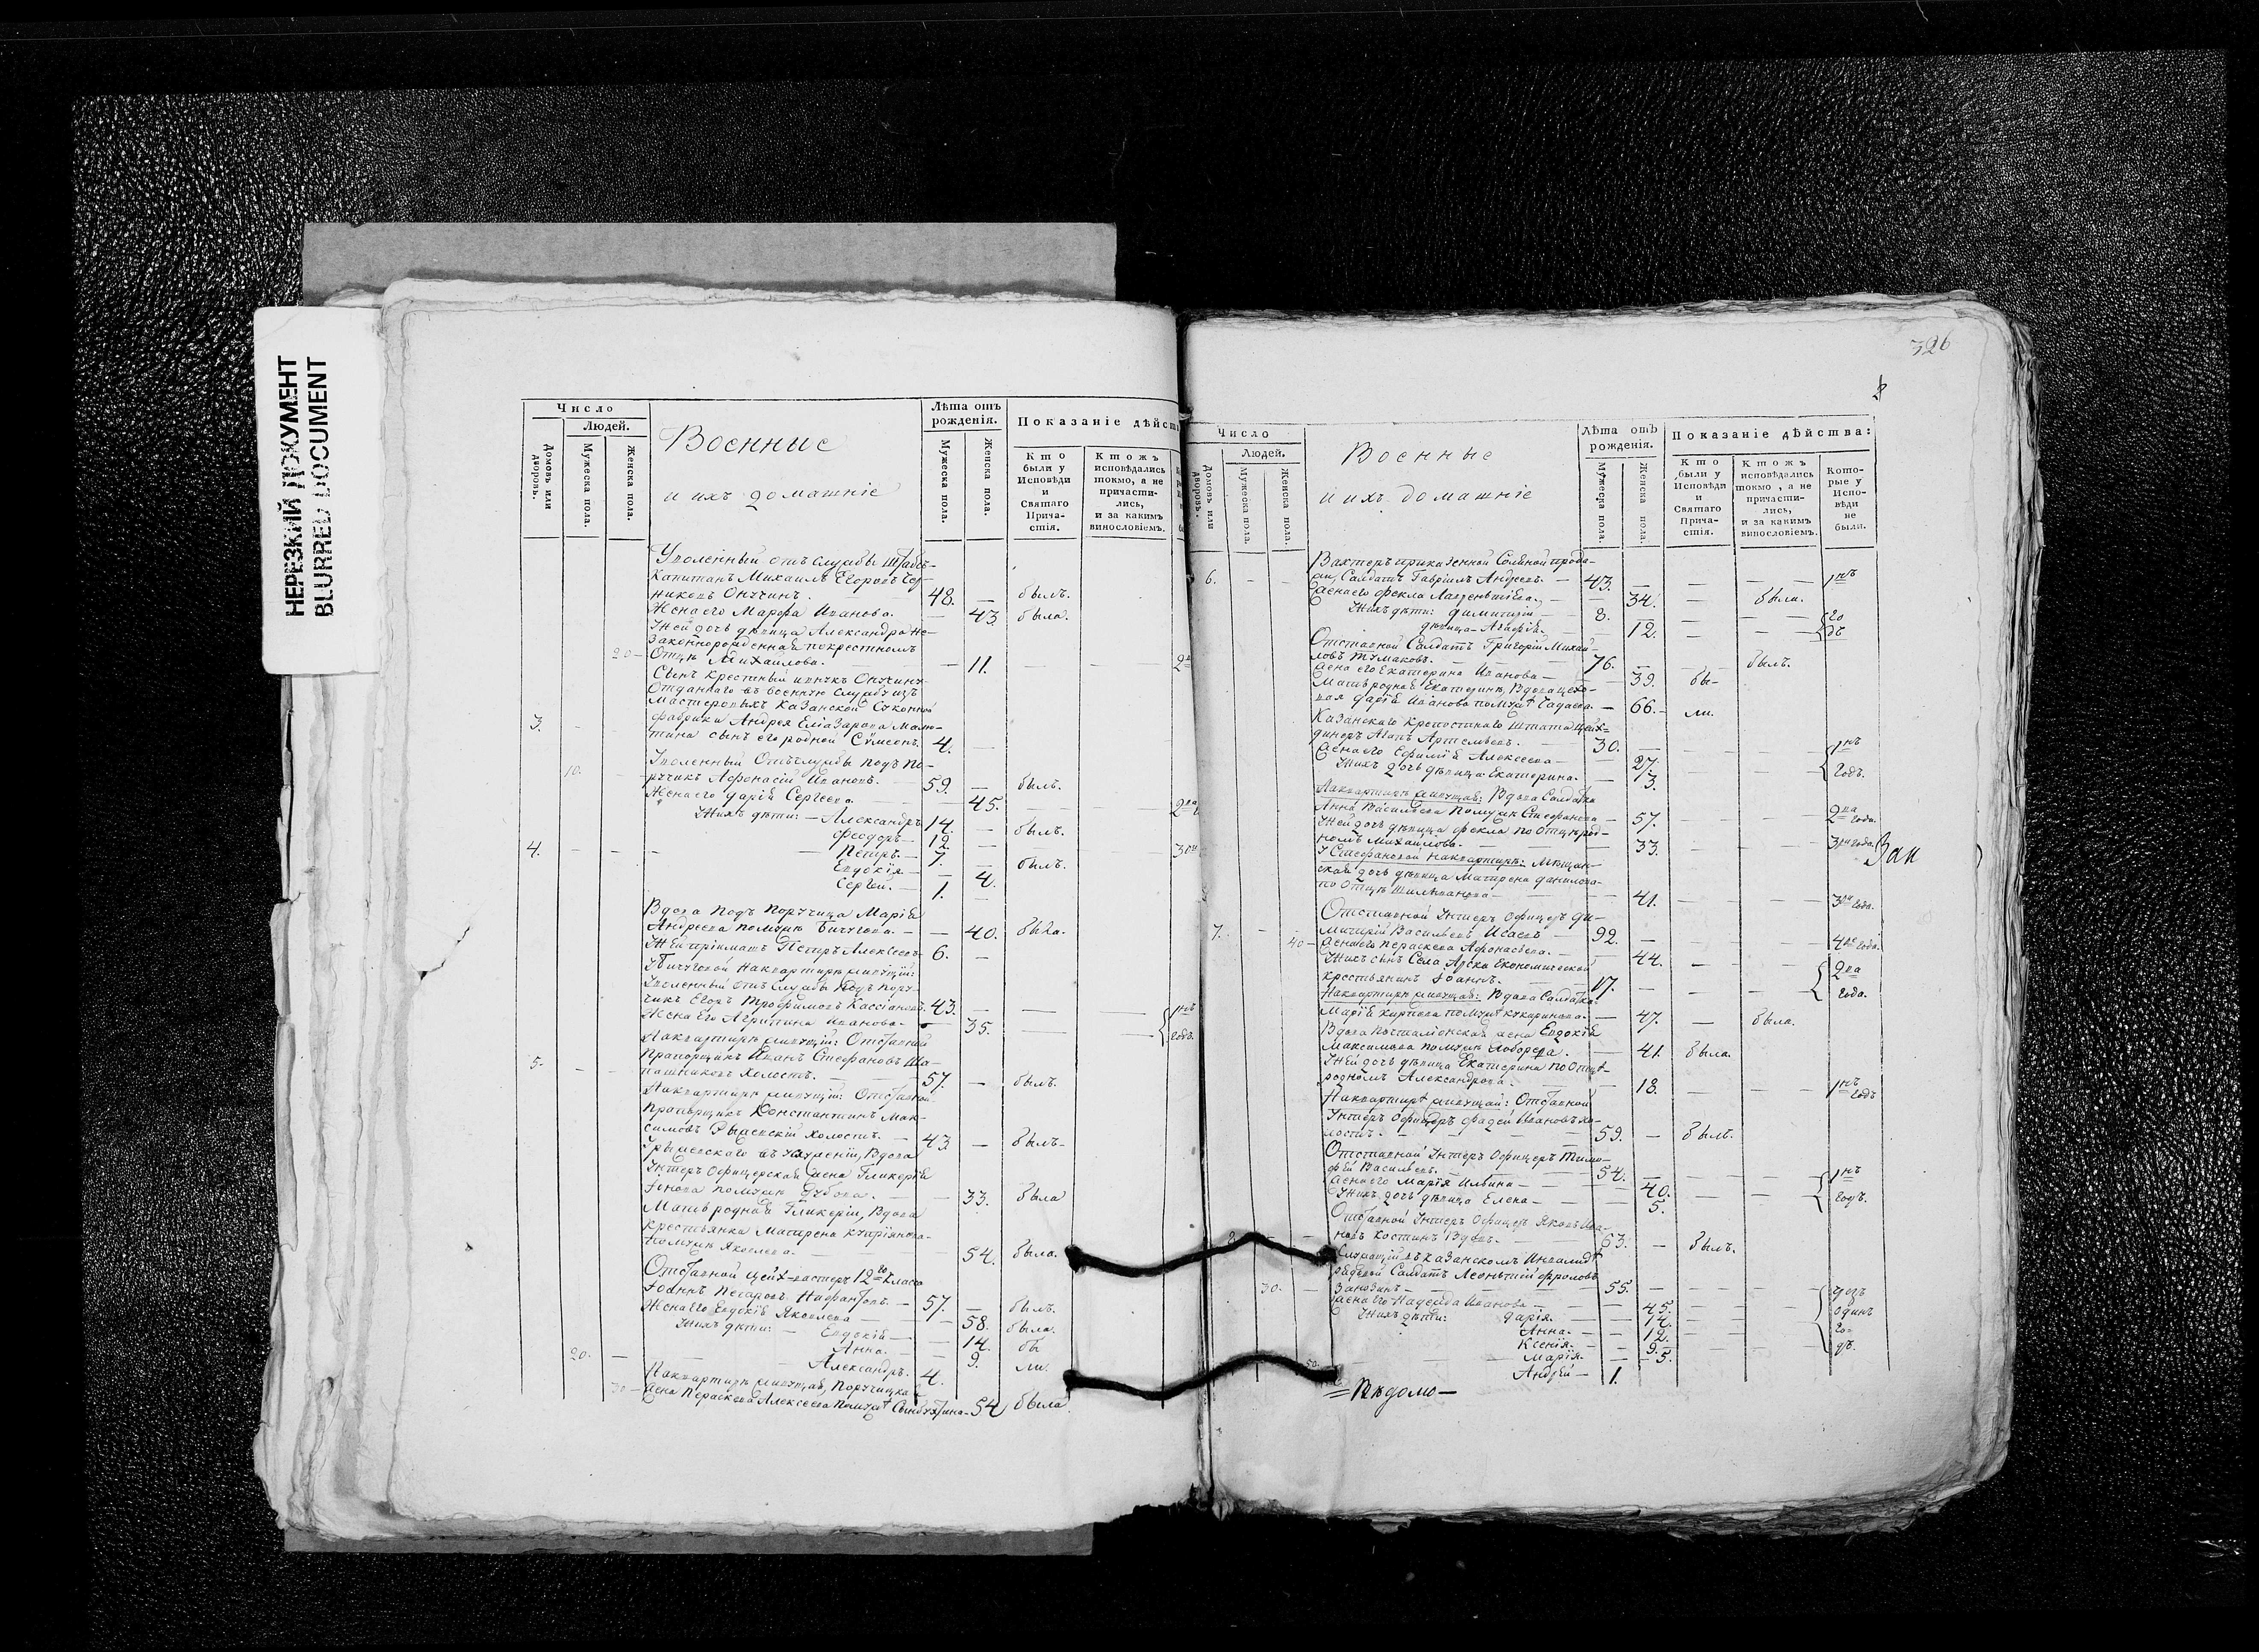 НЕРЕЗКИЙ ДОКУМЕНТ
BLURRED DOCUMENT
Число
Людей.
Домовъ или дворовъ.
Мужеска пола.
Женска пола.
Военные
и ихъ домашніе
Лѣта отъ рожденія.
Мужеска пола.
Женска пола.
Показаніе дѣйст
Кто были у Исповѣди и Святаго Причастія.
Ктожъ исповѣдались токмо, а не причастились, и за какимъ винословіемъ.
Уволенный отъ службы Штабсъ-
Капитанъ Михаилъ Егоровъ
Онучинъ. 48. — былъ.
Жена его Марфа Иванова. — 43. была.
У ней дочь дѣвица Александра не-
законнорожденная по крестномъ
20 — Отцѣ Михаилова. — 11. — — 2
Сынъ крестный
Отданнаго въ военную службу изъ
Мастеровыхъ Казанской Суконной
3. — фабрики Андрея Еліазарова
сынъ его родной Сѵмеонъ. 4. —
Уволенный Отъ службы Подъ По-
10. ручикъ Афонасій Ивановъ. 59. — былъ.
Жена его Дарія Сергеева. — 45. — — 2ва
У нихъ дѣти: — Александръ 14. — былъ.
Феодоръ — 12. —
4. — — Петръ. — 7. — былъ. 3
Евдокія — — 4.
Сергій. — 1. —
Вдова Подъ Поручица Марія
Андреева по мужѣ Бичугова. — — 40. была.
У ней пріиматъ Петръ Алексѣевъ 6. —
У Бичуговой На квартирѣ живущій:
Уволенный отъ службы Подъ Пору-
чикъ Егоръ Трофимовъ Кассіановъ. 43. — — — 1нъ
Жена Его Агрипина Иванова. — 35. — — годъ.
На квартирѣ живущій: Отставной
Прапорщикъ Иванъ Стефановъ Ша-
5. — — пашниковъ Холостъ. — 57. — былъ.
На квартирѣ живущій: Отставной
Прапорщикъ Константинъ Мак-
симовъ Рыжевскій холостъ. — 43 — былъ —
У Рыжевскаго въ услуженіи, Вдова
Унтеръ Офицерская жена Гликерія
по мужѣ Дубова. — — 33. была
Мать родная Гликеріи, Вдова
Крестьянка Матрена Купріянова
по мужѣ Яковлева. — 54. была.
Отставной Цейх-вахтеръ 12го Класа
Іоаннъ Петровъ 57. — былъ.
Жена его Евдокія Яковлева — — 58. была.
У нихъ дѣти: — Евдокія — — 14. бы
Анна. — — 9. ли.
20. — Александръ. 4.
На квартирѣ живущая, Поручицкая
30 — жена Параскева Алексеева по мужѣ 54 была
326
Число
Людей.
Домовъ или дворовъ.
Мужеска пола.
Женска пола.
Военные
и ихъ домашніе
Лѣта отъ рожденія.
Мужеска пола.
Женска пола.
Показаніе дѣйства:
Кто были у Исповѣди и Святаго Причастія.
Ктожъ исповѣдались токмо, а не причастились, и за какимъ винословіемъ.
Которые у Исповѣди не были.
Вахтеръ приказенной Соляной прода-
6. — — жи, Солдатъ Гавріилъ Андреевъ. — 43. — — — 1нъ
Жена его Фекла Лаврентіева. — — 34. — были.
У нихъ дѣти: Димитрій — 8. — — — го
дѣвица Агафія. — — 12. — — дъ
Отставной Солдатъ Григорій Михай-
ловъ Тумаковъ. — 76. — — былъ.
Жена его Екатерина Иванова — — 39. бы-
Мать родная Екатерины, Вдова
Дарія Иванова по мужѣ — 66. — ли.
Казанскаго Крепостнаго Штата
Агапъ Артемьевъ. — 30. — — — 1нъ
Жена его Ефимія Алексеева — — 27. годъ.
У нихъ дочь дѣвица Екатерина. — 3. — —
На квартирѣ живущая: Вдова Солдатка
Анна Васильева По мужѣ Стефанова — 57. — — 2ва года.
У ней дочь дѣвица Фекла по Отцѣ род-
номъ Михайлова. — — 33. — — 3ри года. Зан
У Стефановой на квартирѣ: Мѣщан-
ская дочь дѣвица Матрена Данилова
по Отцѣ — — 41. — — 3ри года.
Отставной Унтеръ Офицеръ Ди-
7. — митрій Васильевъ Исаевъ — 92. — — — 4ре года.
40 — Жена его Параскева Афонасьева. — 44. — —
У нихъ сынъ Села Арска Економической 2ва
крестьянинъ Іоаннъ. — 17. — — года.
На квартирѣ живущая: Вдова Солдатка
Марія Карпова по мужѣ — 47. — была.
Вдова Почталіонская жена Евдокія
Максимова по мужѣ — 41. была.
У ней дочь дѣвица Екатерина по Отцѣ
родномъ Александрова. — 18. — — 1нъ годъ
На квартирѣ живущій: Отставной
Унтеръ Офицеръ Фадей Ивановъ хо-
лостъ. — 59. — былъ.
Отставной Унтеръ Офицеръ Тимо-
фей Васильевъ. — 54. — — — 1нъ
Жена его Марія Ильина — — 40. годъ.
У нихъ дочь дѣвица Елена — 5. — —
Отставной Унтеръ Офицеръ Яковъ Ива-
8. — новъ Костинъ Вдовъ. — 63. — былъ.
Служащій въ Казанскомъ Инвалидѣ
рядовой Солдатъ Леонтій Фроловъ
30. — 55. — — —
Жена Его Надежда Иванова — — 45. — — одинъ
У нихъ дѣти: Дарія. — 14. — —
Анна — — 12. — — го-
Ксенія. — — 9. — — дъ.
50. Марія — — 5.
Андрей — 1.
= Вѣдомо —